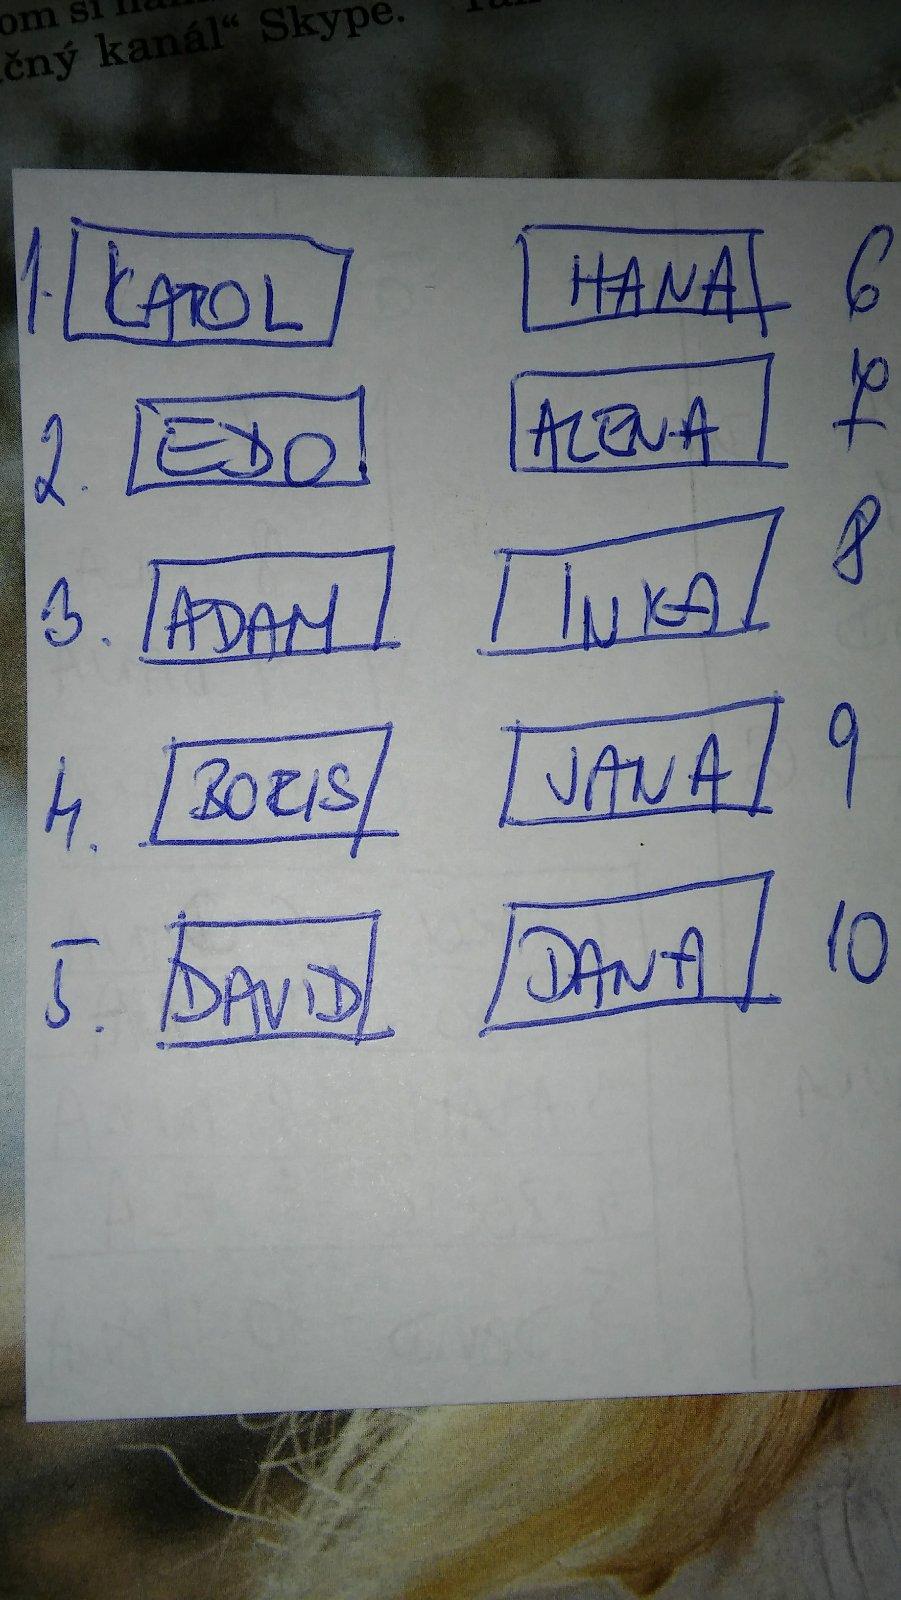 čný kanál“ Skype.
1. KAROL HANA 6
2. EDO ALENA 7
3. ADAM INKA 8
4. BORIS JANA 9
5. DAVID DANA 10